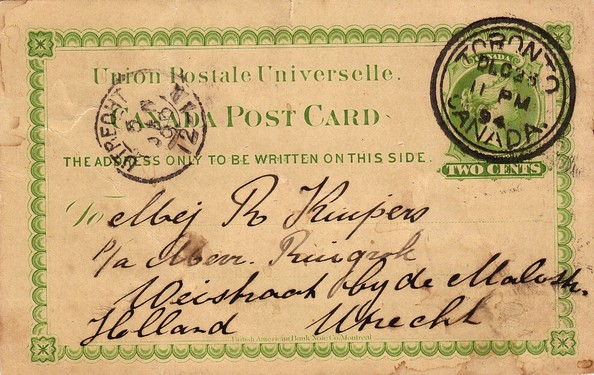 Union Postale Universelle.
CANADA POST CARD
THE ADDRESS ONLY TO BE WRITTEN ON THIS SIDE.
CANADA
TWO CENTS
TORONTO
DEC 23
11 PM
94
CANADA
UTRECHT
To Mej R Kuipers
p/a Mevr. Ringrok
Weistraat by de
Holland Utrecht
British American Bank Note Co. Montreal